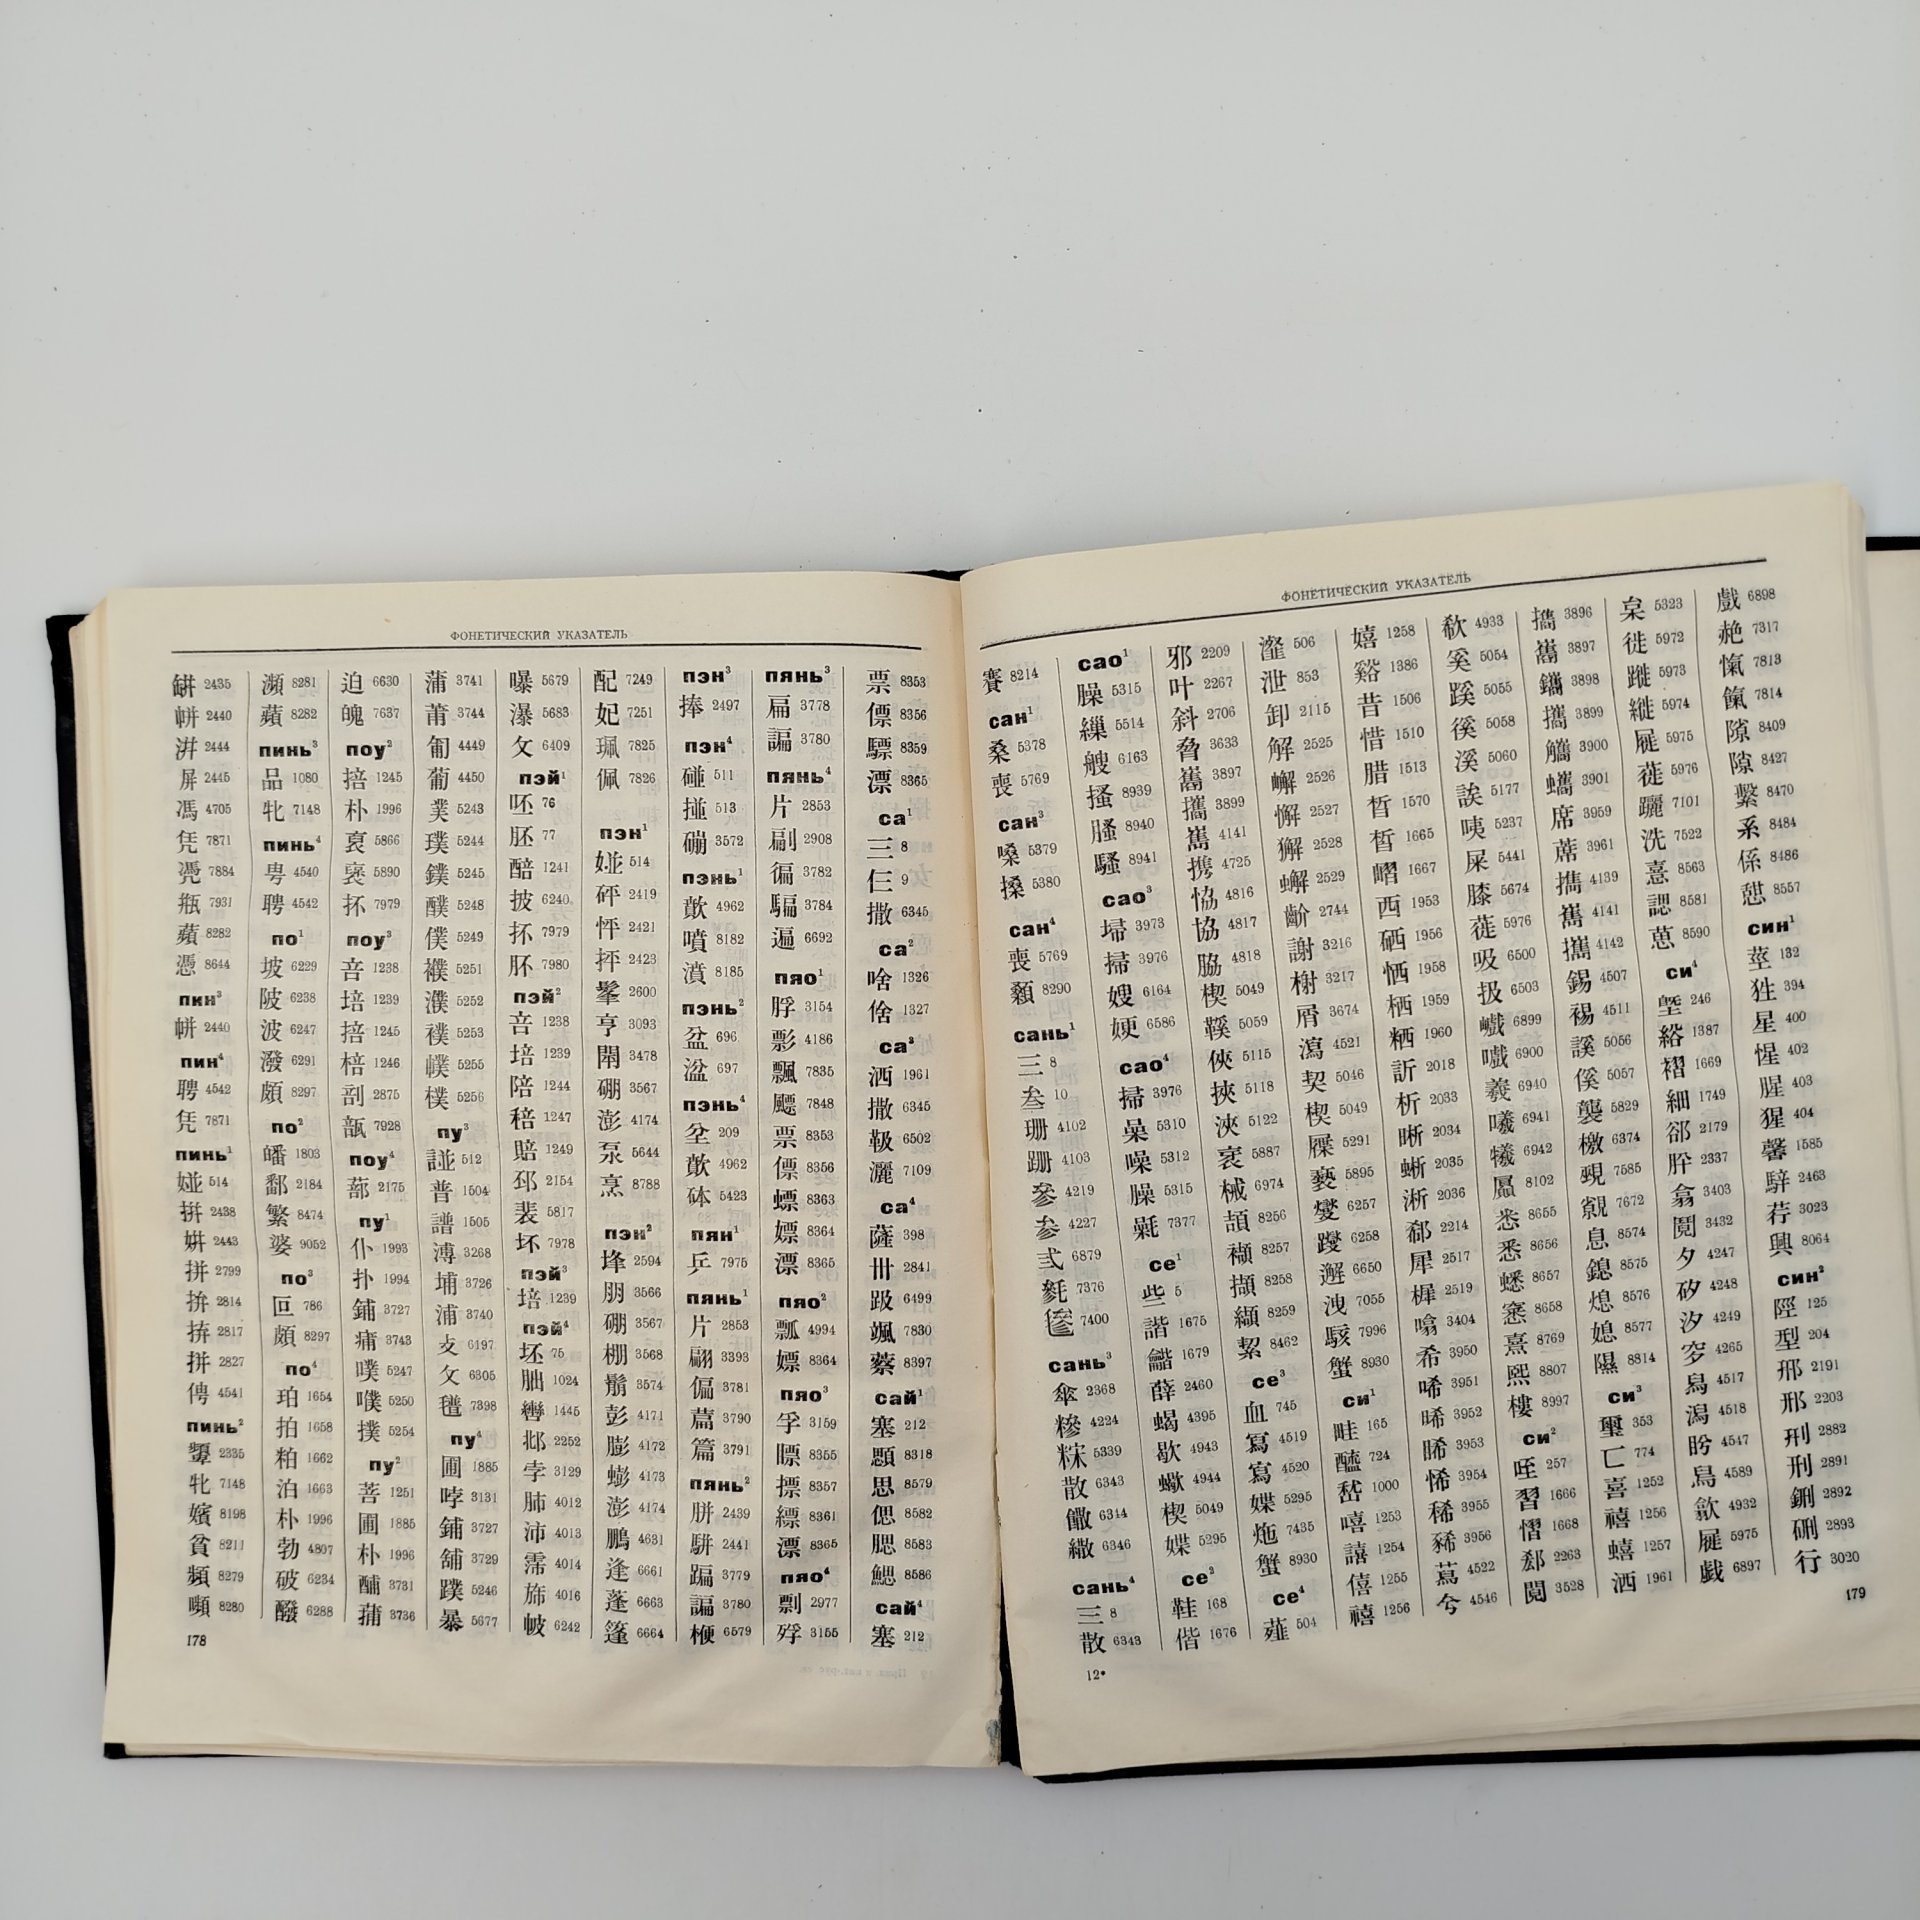 ФОНЕТИЧЕСКИЙ УКАЗАТЕЛЬ
2435
2440
2444
屏 2445
馮 4705
凭 7871
凴 7884
甁 7931
蘋 8282
憑 8644
пин³
2440
пин⁴
聘 4542
凭 7871
пинь¹
514
拼 2438
姘 2443
2799
2814
2817
2827
俜 4541
пинь²
2335
牝 7148
嬪 8198
貧 8211
頻 8279
嚬 8280
178
瀕 8281
蘋 8282
пинь³
品 1080
牝 7148
пинь⁴
甹 4540
聘 4542
по¹
坡 6229
陂 6238
波 6247
潑 6291
頗 8297
по²
皤 1803
鄱 2184
繁 8474
婆 9052
по³
叵 786
頗 8297
по⁴
珀 1654
拍 1658
粕 1662
泊 1663
朴 1996
勃 4807
破 6234
醱 6288
迫 6630
魄 7637
поу²
掊 1245
朴 1996
裒 5866
5890
抔 7979
поу³
咅 1238
培 1239
掊 1245
棓 1246
剖 2875
瓿 7928
поу⁴
蔀 2175
пу¹
仆 1993
扑 1994
鋪 3727
痡 3743
噗 5247
5250
撲 5254
пу²
菩 1251
圃 1885
朴 1996
酺 3731
蒱 3736
蒲 3741
莆 3744
匍 4449
葡 4450
菐 5243
璞 5244
鏷 5245
醭 5248
僕 5249
襆 5251
濮 5252
襥 5253
幞 5255
樸 5256
пу³
512
普 1504
譜 1505
溥 3268
埔 3726
浦 3740
攴 6197
攵 6305
氆 7398
пу⁴
圃 1885
哱 3131
鋪 3727
舖 3729
蹼 5246
暴 5677
曝 5679
瀑 5683
攵 6409
пэй¹
呸 76
胚 77
醅 1241
披 6240
抔 7979
肧 7980
пэй²
咅 1238
培 1239
陪 1244
稖 1247
賠 1249
邳 2154
裴 5817
坏 7978
пэй³
培 1239
пэй⁴
坯 75
朏 1024
轡 1445
邶 2252
孛 3129
肺 4012
沛 4013
霈 4014
旆 4016
帔 6242
配 7249
妃 7251
珮 7825
佩 7826
пэн¹
514
砰 2419
怦 2421
抨 2423
2600
亨 3093
閛 3478
硼 3567
澎 4174
泵 5644
烹 8788
пэн²
埄 2594
朋 3566
硼 3567
棚 3568
鬅 3574
彭 4171
膨 4172
蟛 4173
澎 4174
鵬 4631
逢 6661
蓬 6663
篷 6664
пэн³
捧 2497
пэн⁴
碰 511
掽 513
磞 3572
пэнь¹
歕 4962
噴 8182
濆 8185
пэнь²
盆 696
湓 697
пэнь⁴
坌 209
歕 4962
5423
пян¹
乒 7975
пянь¹
片 2853
翩 3393
偏 3781
萹 3790
篇 3791
пянь²
胼 2439
駢 2441
蹁 3779
諞 3780
楩 6579
пянь³
扁 3778
諞 3780
пянь⁴
片 2853
2908
徧 3782
騙 3784
遍 6692
пяо¹
脬 3154
彯 4186
飄 7835
7848
票 8353
僄 8356
螵 8363
嫖 8364
漂 8365
пяо²
瓢 4994
嫖 8364
пяо³
殍 3159
瞟 8355
摽 8357
縹 8361
漂 8365
пяо⁴
剽 2977
殍 3155
票 8353
僄 8356
驃 8359
漂 8365
са¹
三 8
仨 9
撒 6345
са²
啥 1326
倽 1327
са³
洒 1961
撒 6345
靸 6502
灑 7109
са⁴
薩 398
卅 2841
趿 6499
颯 7830
蔡 8397
сай¹
塞 212
顋 8318
思 8579
偲 8582
腮 8583
鰓 8586
сай⁴
塞 212
ФОНЕТИЧЕСКИЙ УКАЗАТЕЛЬ
賽 8214
сан¹
桑 5378
喪 5769
сан³
嗓 5379
搡 5380
сан⁴
喪 5769
顙 8290
сань¹
三 8
叁 10
珊 4102
跚 4103
參 4219
参 4227
弎 6879
毿 7376
7400
сань³
傘 2368
糝 4224
5339
散 6343
饊 6344
繖 6346
сань⁴
三 8
散 6343
12*
сао¹
臊 5315
繅 5514
艘 6163
搔 8939
8940
騷 8941
сао³
埽 3973
掃 3976
嫂 6164
6586
сао⁴
掃 3976
喿 5310
噪 5312
臊 5315
氉 7377
се¹
些 5
諧 1675
1679
薛 2460
蝎 4395
歇 4943
蠍 4944
楔 5049
媟 5295
се²
鞋 168
偕 1676
邪 2209
叶 2267
斜 2706
脅 3633
3897
攜 3899
4141
携 4725
恊 4816
協 4817
脇 4818
楔 5049
5059
俠 5115
挾 5118
浹 5122
衺 5887
械 6974
頡 8256
襭 8257
擷 8258
纈 8259
絜 8462
се³
血 745
寫 4519
寫 4520
媟 5295
炧 7435
蟹 8930
се⁴
薤 504
瀣 506
泄 853
卸 2115
解 2525
2526
懈 2527
獬 2528
2529
齘 2744
謝 3216
榭 3217
屑 3674
瀉 4521
契 5046
楔 5049
屧 5291
褻 5895
燮 6257
躞 6258
邂 6650
洩 7055
駭 7996
蟹 8930
си¹
畦 165
醯 724
嵆 1000
嘻 1253
譆 1254
僖 1255
禧 1256
嬉 1258
谿 1386
昔 1506
惜 1510
腊 1513
晳 1570
皙 1665
1667
西 1953
硒 1956
恓 1958
栖 1959
粞 1960
訢 2018
析 2033
晰 2034
蜥 2035
淅 2036
郗 2214
犀 2517
樨 2519
噏 3404
希 3950
唏 3951
晞 3952
睎 3953
悕 3954
稀 3955
豨 3956
蔿 4522
兮 4546
欷 4933
奚 5054
蹊 5055
徯 5058
溪 5060
誒 5177
咦 5237
屎 5441
膝 5674
蓰 5976
吸 6500
扱 6503
巇 6899
嚱 6900
羲 6940
曦 6941
犧 6942
屭 8102
恷 8655
悉 8656
蟋 8657
8658
熹 8769
熙 8807
8997
си²
咥 257
習 1666
慴 1668
郄 2263
鬩 3528
3896
巂 3897
鑴 3898
攜 3899
觿 3900
蠵 3901
席 3959
蓆 3961
4139
4141
4142
錫 4507
裼 4511
謑 5056
傒 5057
襲 5829
檄 6374
覡 7585
覤 7672
息 8574
鎴 8575
熄 8576
媳 8577
隰 8814
си³
璽 353
匸 774
喜 1252
禧 1256
蟢 1257
洒 1961
枲 5323
徙 5972
蹝 5973
縰 5974
屣 5975
蓰 5976
躧 7101
洗 7522
憙 8563
諰 8581
葸 8590
си⁴
塈 246
綌 1387
褶 1669
細 1749
郤 2179
肸 2337
翕 3403
鬩 3432
夕 4247
矽 4248
汐 4249
穸 4265
舄 4517
潟 4518
盻 4547
舃 4589
歙 4932
屣 5975
戯 6897
戲 6898
赩 7317
愾 7813
餼 7814
隙 8409
隟 8427
繫 8470
系 8484
係 8486
憇 8557
син¹
莖 132
狌 394
星 400
惺 402
腥 403
猩 404
馨 1585
騂 2463
荇 3023
興 8064
син²
陘 125
型 204
邢 2191
邢 2203
刑 2882
刑 2891
鉶 2892
硎 2893
行 3020
179